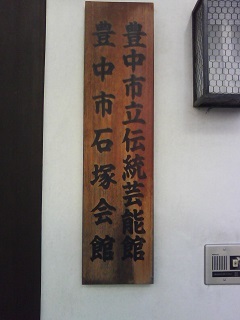 豊中市立伝統芸能館
豊中市石塚会館